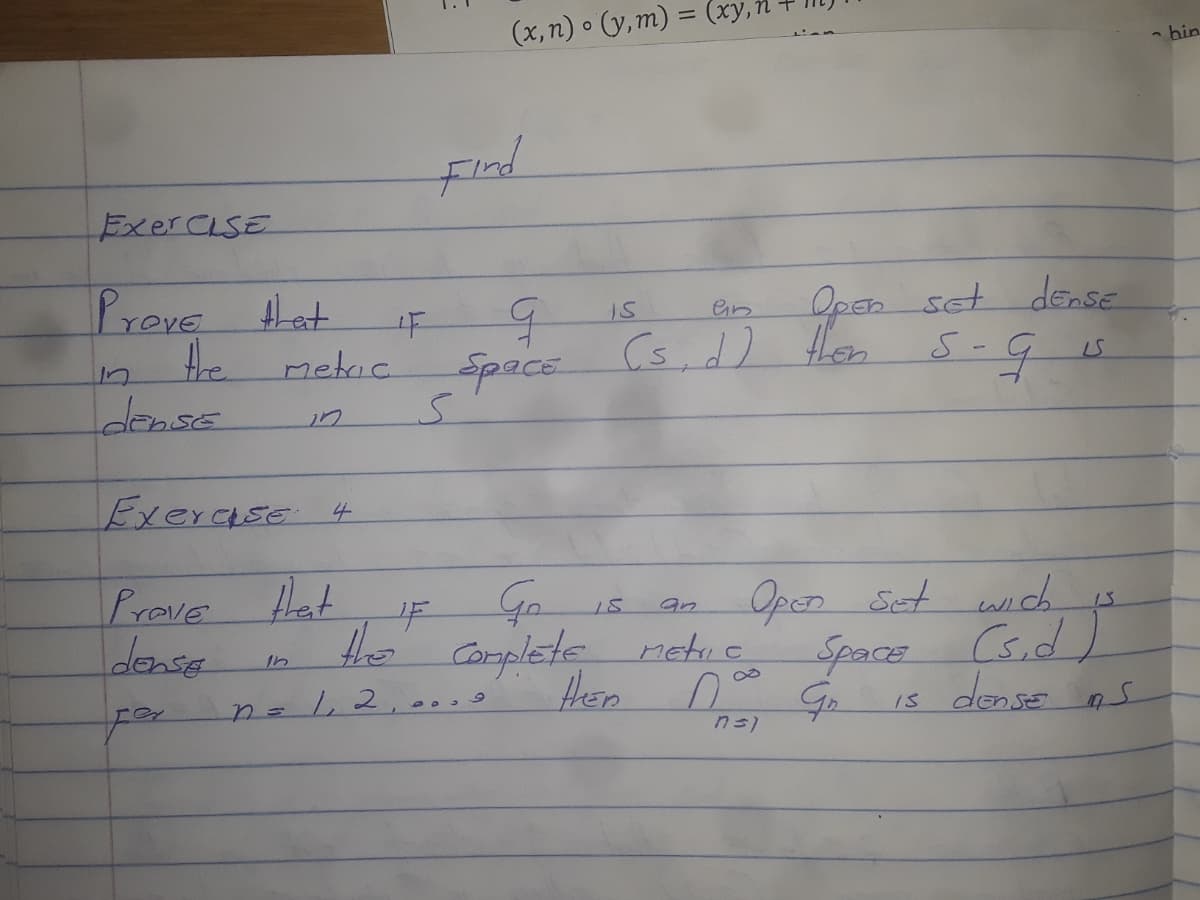 (x,n) ∘ (y,m) = (xy, n +
Find
Exercise
Prove that if G is an Open set dense
in the metric space (S, d) then S - G is
dense in S
Exercise 4
Prove that if Gn is an Open set wich is
dense in the complete metric space (S, d)
For n = 1, 2, .... then ∩^∞_{n=1} Gn is dense in S